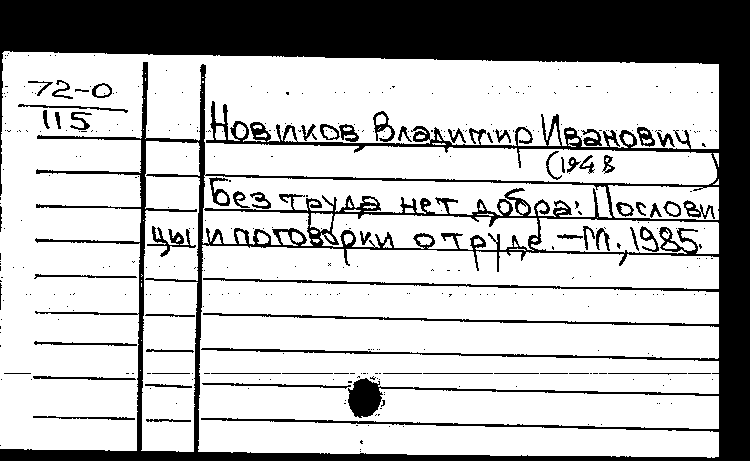 72-0
115
Новиков, Владимир Иванович.
(1948 )
Без труда нет добра: Послови
цы и поговорки о труде. - М., 1985.